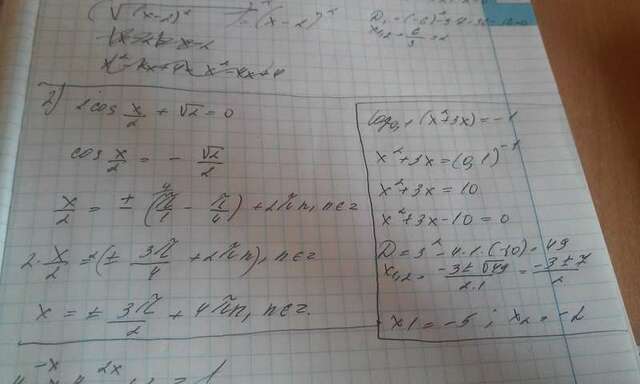 √(x-2)² = (x-2)²
D = (-6)²
x₁,₂ = 6/3 = 2
2) 2cos x/2 + √2 = 0
cos x/2 = - √2/2
x/2 = ± (π/1 - π/4) + 2πn, n∈z
2·x/2 = 2(± 3π/4 + 2πn), n∈z
x = ± 3π/2 + 4πn, n∈z.
log₀,₁(x²+3x) = -1
x²+3x = (0,1)⁻¹
x²+3x = 10
x²+3x-10 = 0
D = 3² - 4·1·(-10) = 49
x₁,₂ = (-3±√49)/(2·1) = (-3±7)/2
x1 = -5 ; x₂ = -2
-x 2x